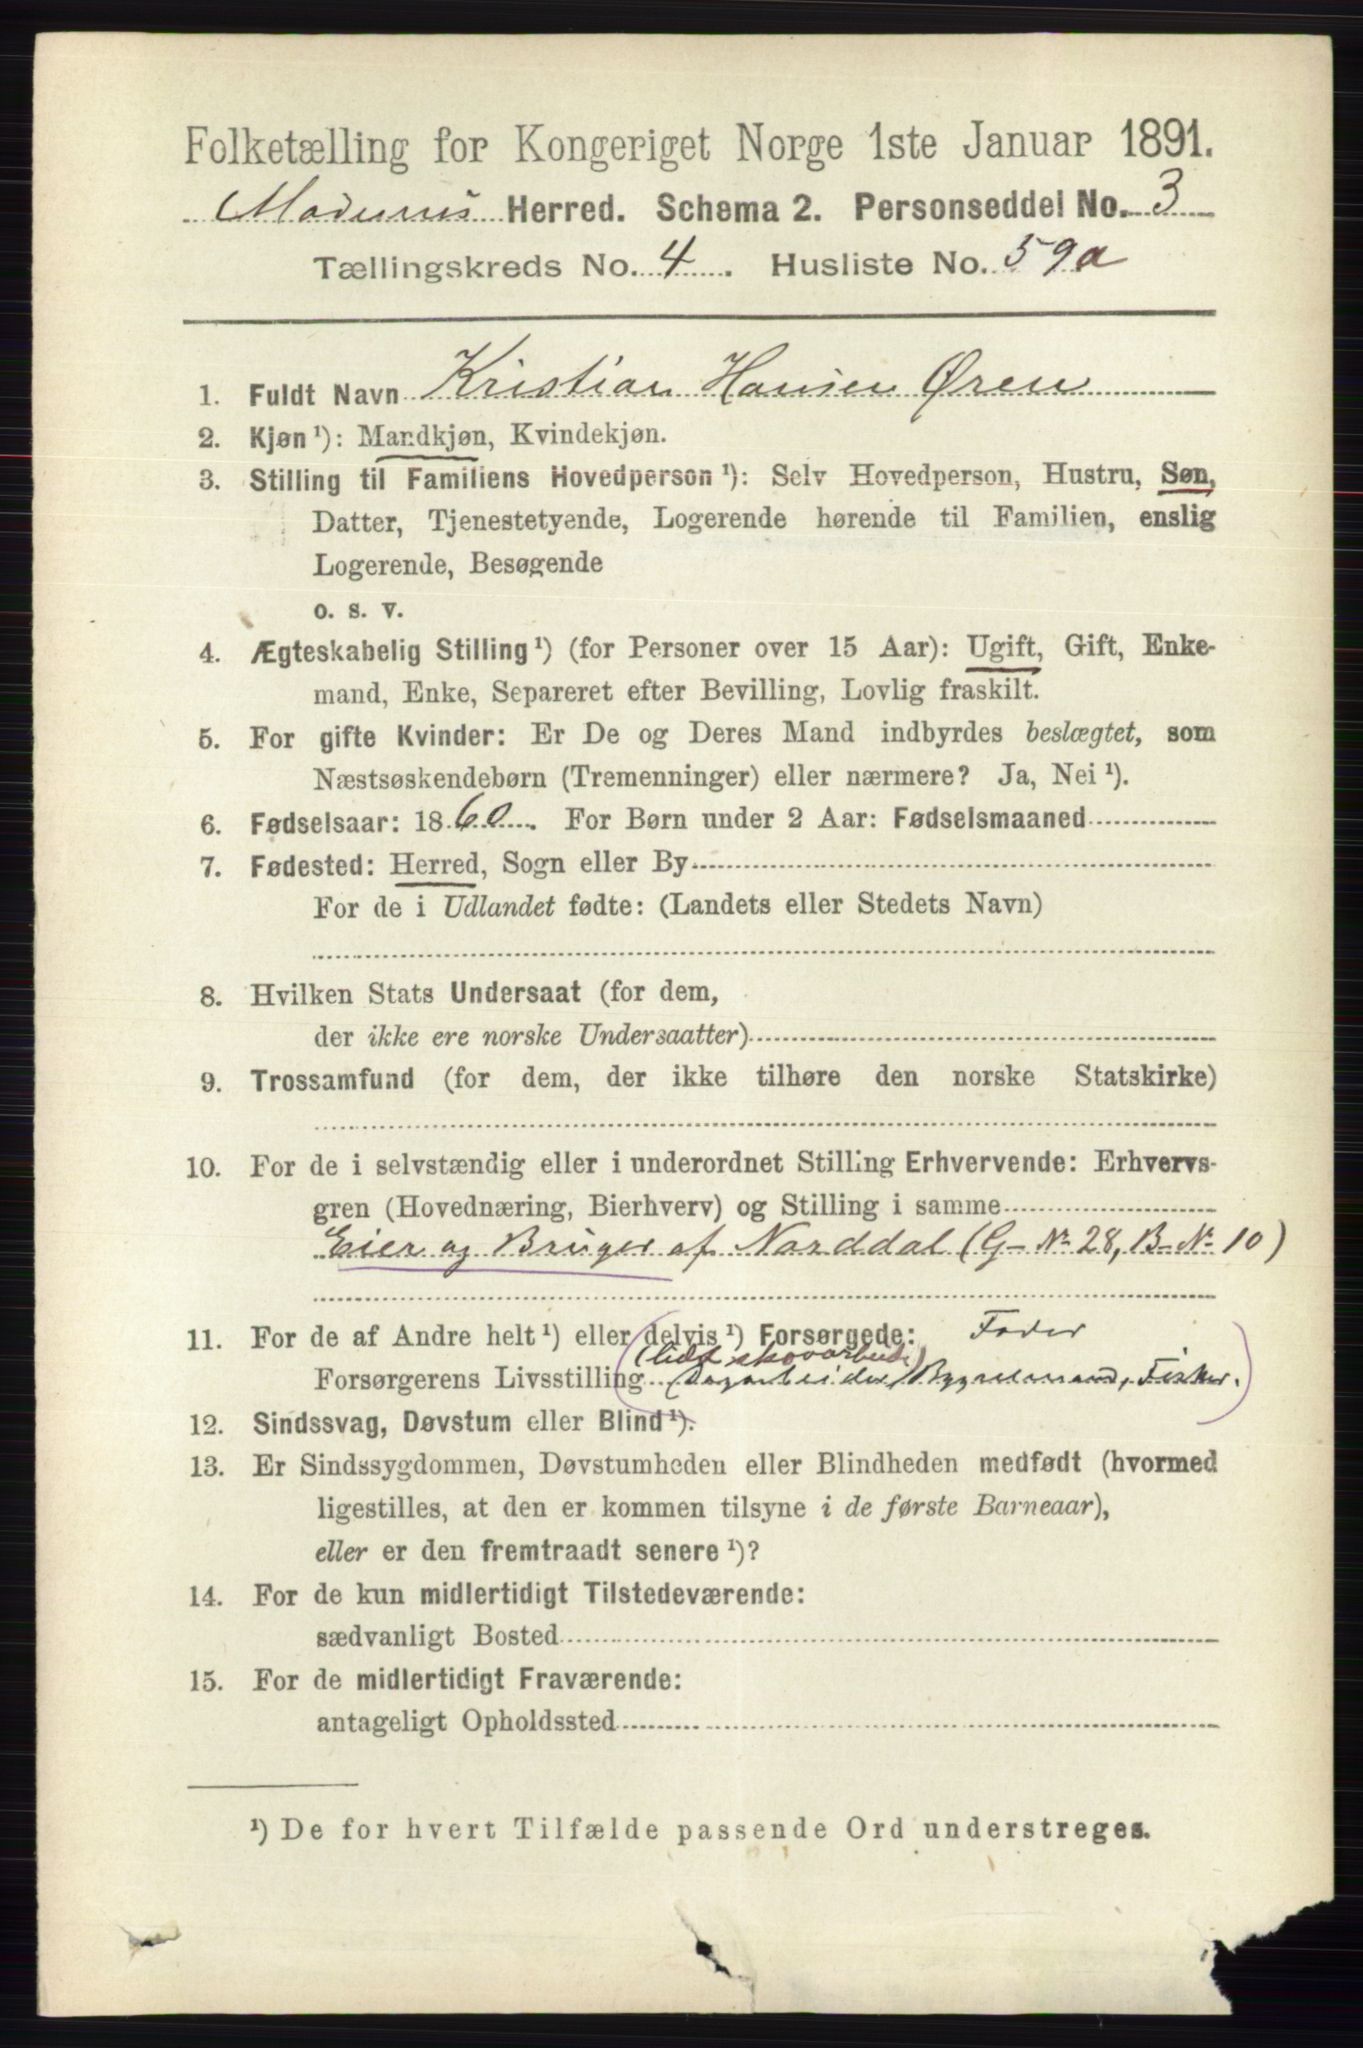 Folketælling for Kongeriget Norge 1ste Januar 1891.
Modums Herred. Schema 2. Personseddel No. 3
Tællingskreds No. 4. Husliste No. 59a
1. Fuldt Navn Kristian Hansen Øren
2. Kjøn ¹): Mandkjøn, Kvindekjøn.
3. Stilling til Familiens Hovedperson ¹): Selv Hovedperson, Hustru, Søn,
Datter, Tjenestetyende, Logerende hørende til Familien, enslig
Logerende, Besøgende
o. s. v.
4. Ægteskabelig Stilling ¹) (for Personer over 15 Aar): Ugift, Gift, Enke-
mand, Enke, Separeret efter Bevilling, Lovlig fraskilt.
5. For gifte Kvinder: Er De og Deres Mand indbyrdes beslægtet, som
Næstsøskendebørn (Tremenninger) eller nærmere? Ja, Nei ¹).
6. Fødselsaar: 1860. For Børn under 2 Aar: Fødselsmaaned
7. Fødested: Herred, Sogn eller By
For de i Udlandet fødte: (Landets eller Stedets Navn)
8. Hvilken Stats Undersaat (for dem,
der ikke ere norske Undersaatter)
9. Trossamfund (for dem, der ikke tilhøre den norske Statskirke)
10. For de i selvstændig eller i underordnet Stilling Erhvervende: Erhvervs-
gren (Hovednæring, Bierhverv) og Stilling i samme
Eier og Bruger af Norddal (G-Nº 28, B-Nº 10)
11. For de af Andre helt ¹) eller delvis ¹) Forsørgede: Fader
(lidt skovarbeide)
Forsørgerens Livsstilling Dagarbeider, Bygselmand, Fisker.
12. Sindssvag, Døvstum eller Blind ¹).
13. Er Sindssygdommen, Døvstumheden eller Blindheden medfødt (hvormed
ligestilles, at den er kommen tilsyne i de første Barneaar),
eller er den fremtraadt senere ¹)?
14. For de kun midlertidigt Tilstedeværende:
sædvanligt Bosted
15. For de midlertidigt Fraværende:
antageligt Opholdssted
¹) De for hvert Tilfælde passende Ord understreges.